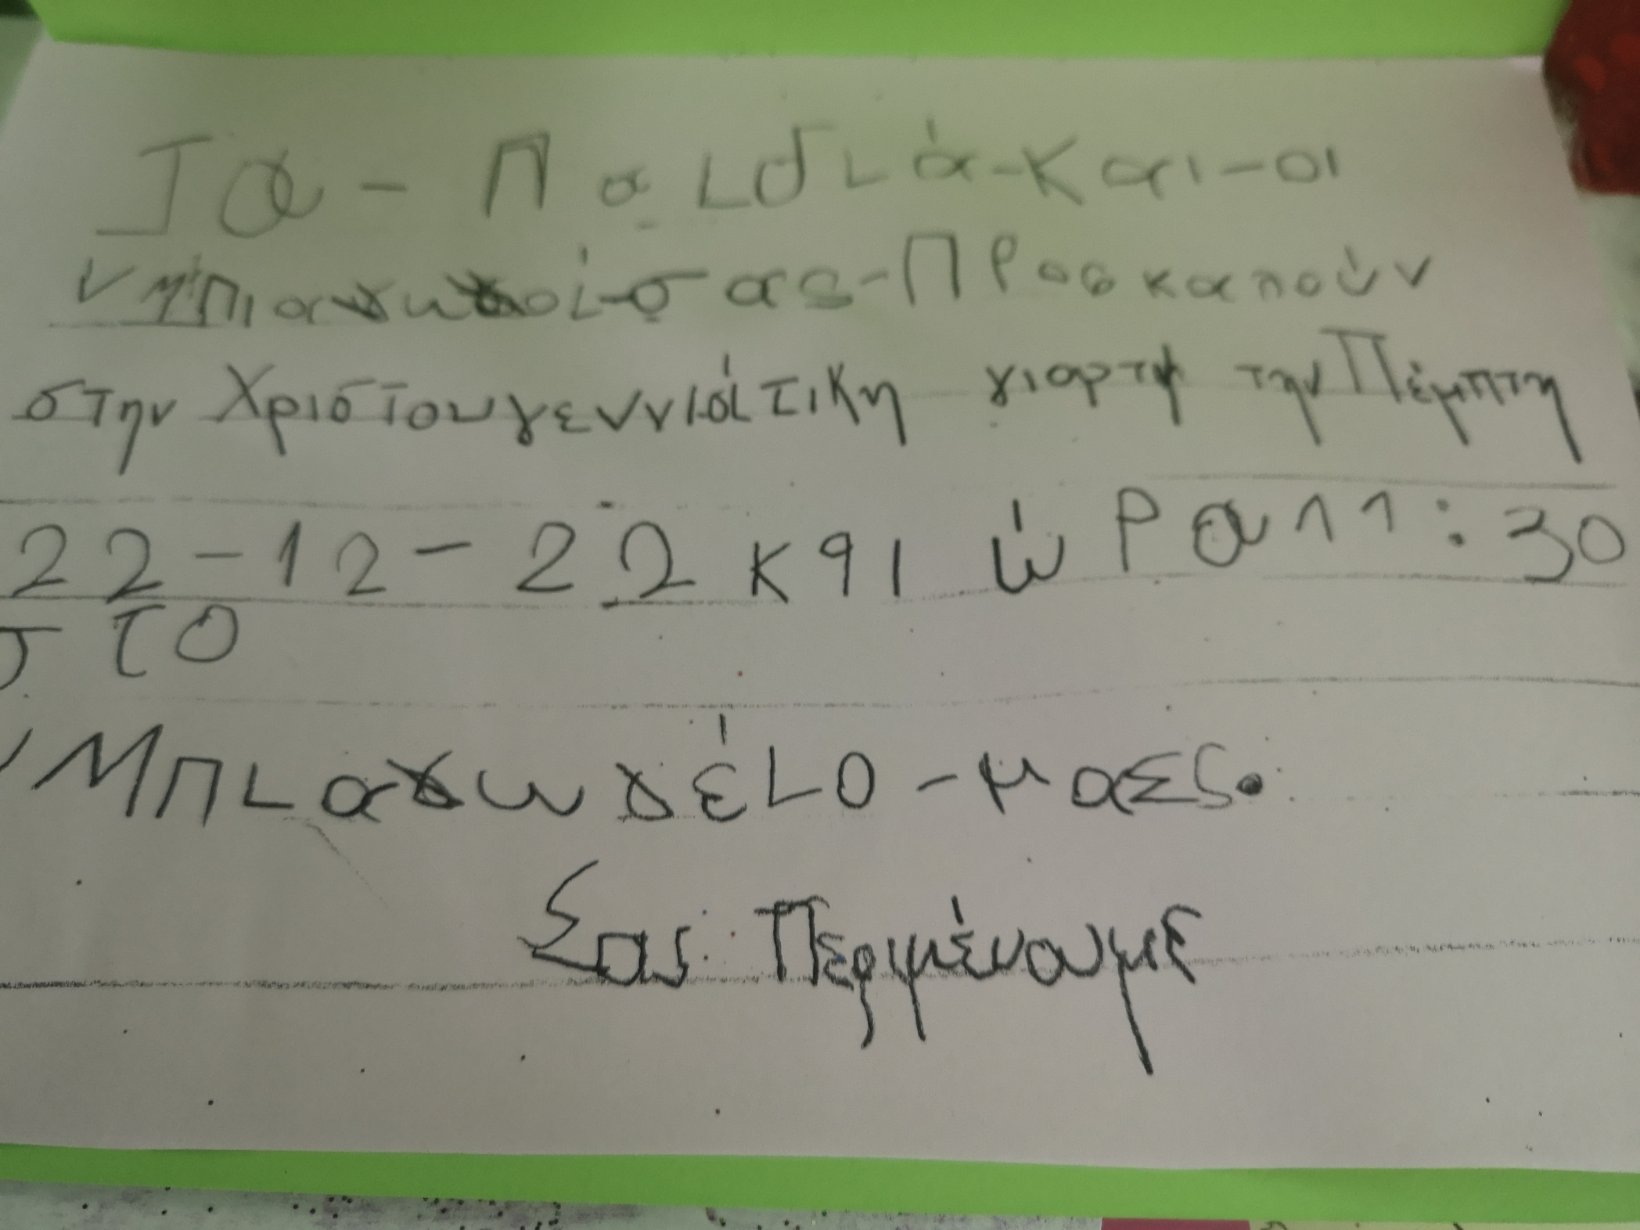 Τα - Παιδιά - και - οι
νηπιαγωγοί - σας - Προσκαλούν
στην Χριστουγεννιάτικη γιορτή την Πέμπτη
22 - 12 - 22 και ώρα 11:30
στο
νΜπιαγωγείο - μας.
Σας Περιμένουμε